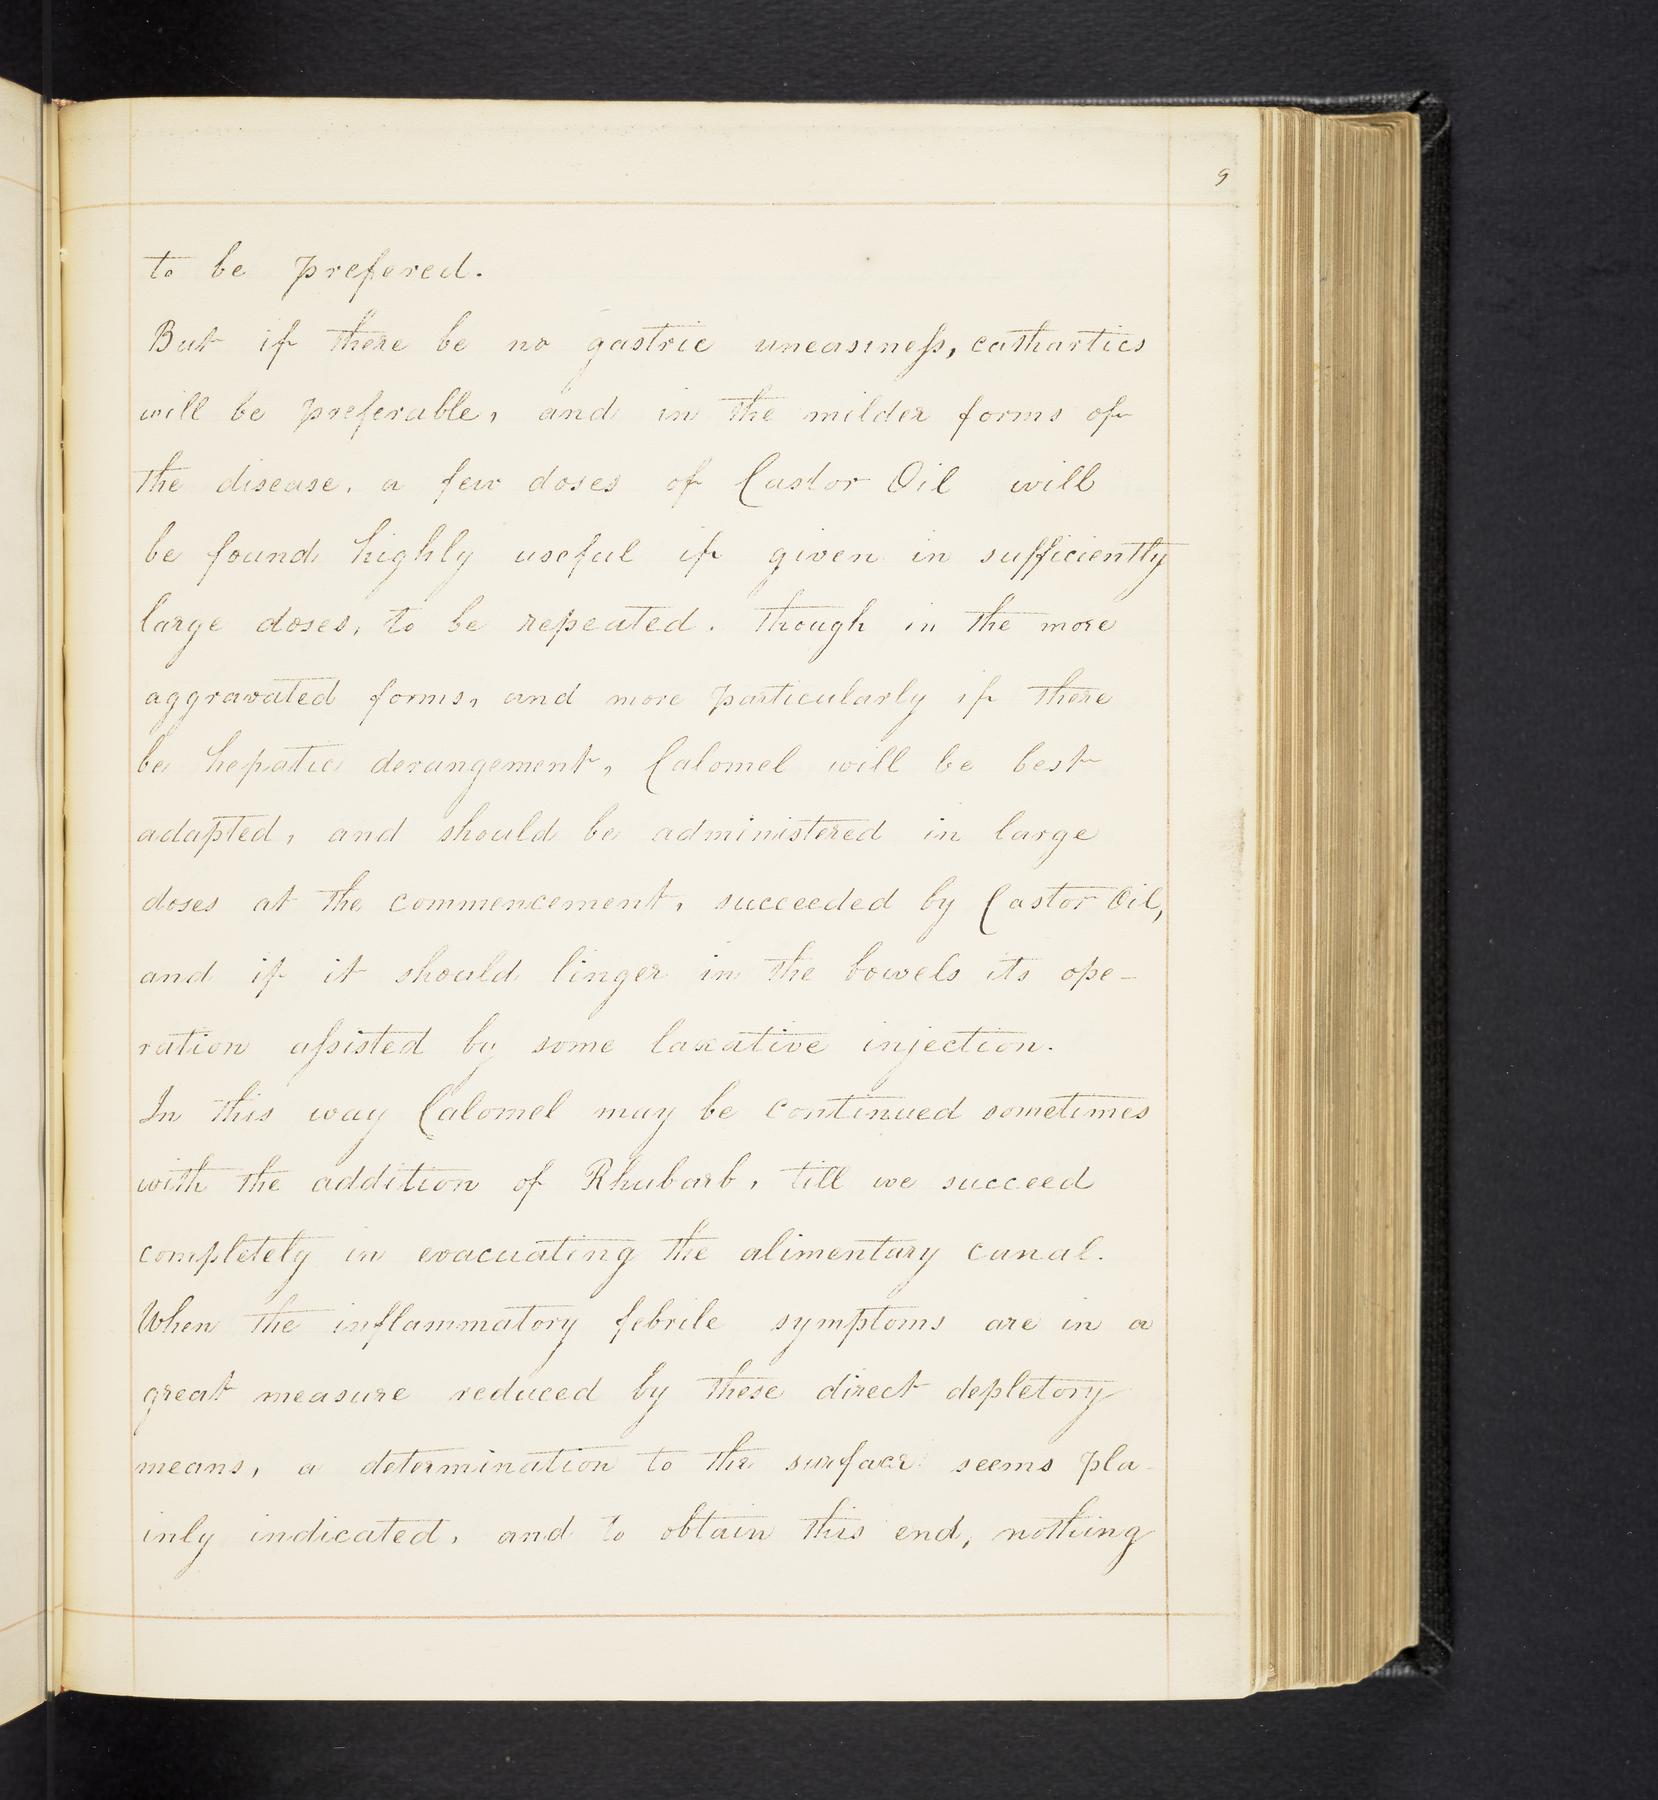 9
to be prefered.
But if there be no gastric uneasiness, cathartics
will be preferable, and in the milder forms of
the disease, a few doses of Castor Oil will
be found highly useful if given in sufficiently
large doses, to be repeated. though in the more
aggravated forms, and more particularly if there
be hepatic derangement, Calomel will be best
adapted, and should be administered in large
doses at the commencement, succeeded by Castor Oil,
and if it should linger in the bowels its ope-
ration assisted by some laxative injection.
In this way Calomel may be continued sometimes
with the addition of Rhubarb, till we succeed
completely in evacuating the alimentary canal.
When the inflammatory febrile symptoms are in a
great measure reduced by these direct depletory
means, a determination to the surface seems pla-
inly indicated, and to obtain this end, nothing